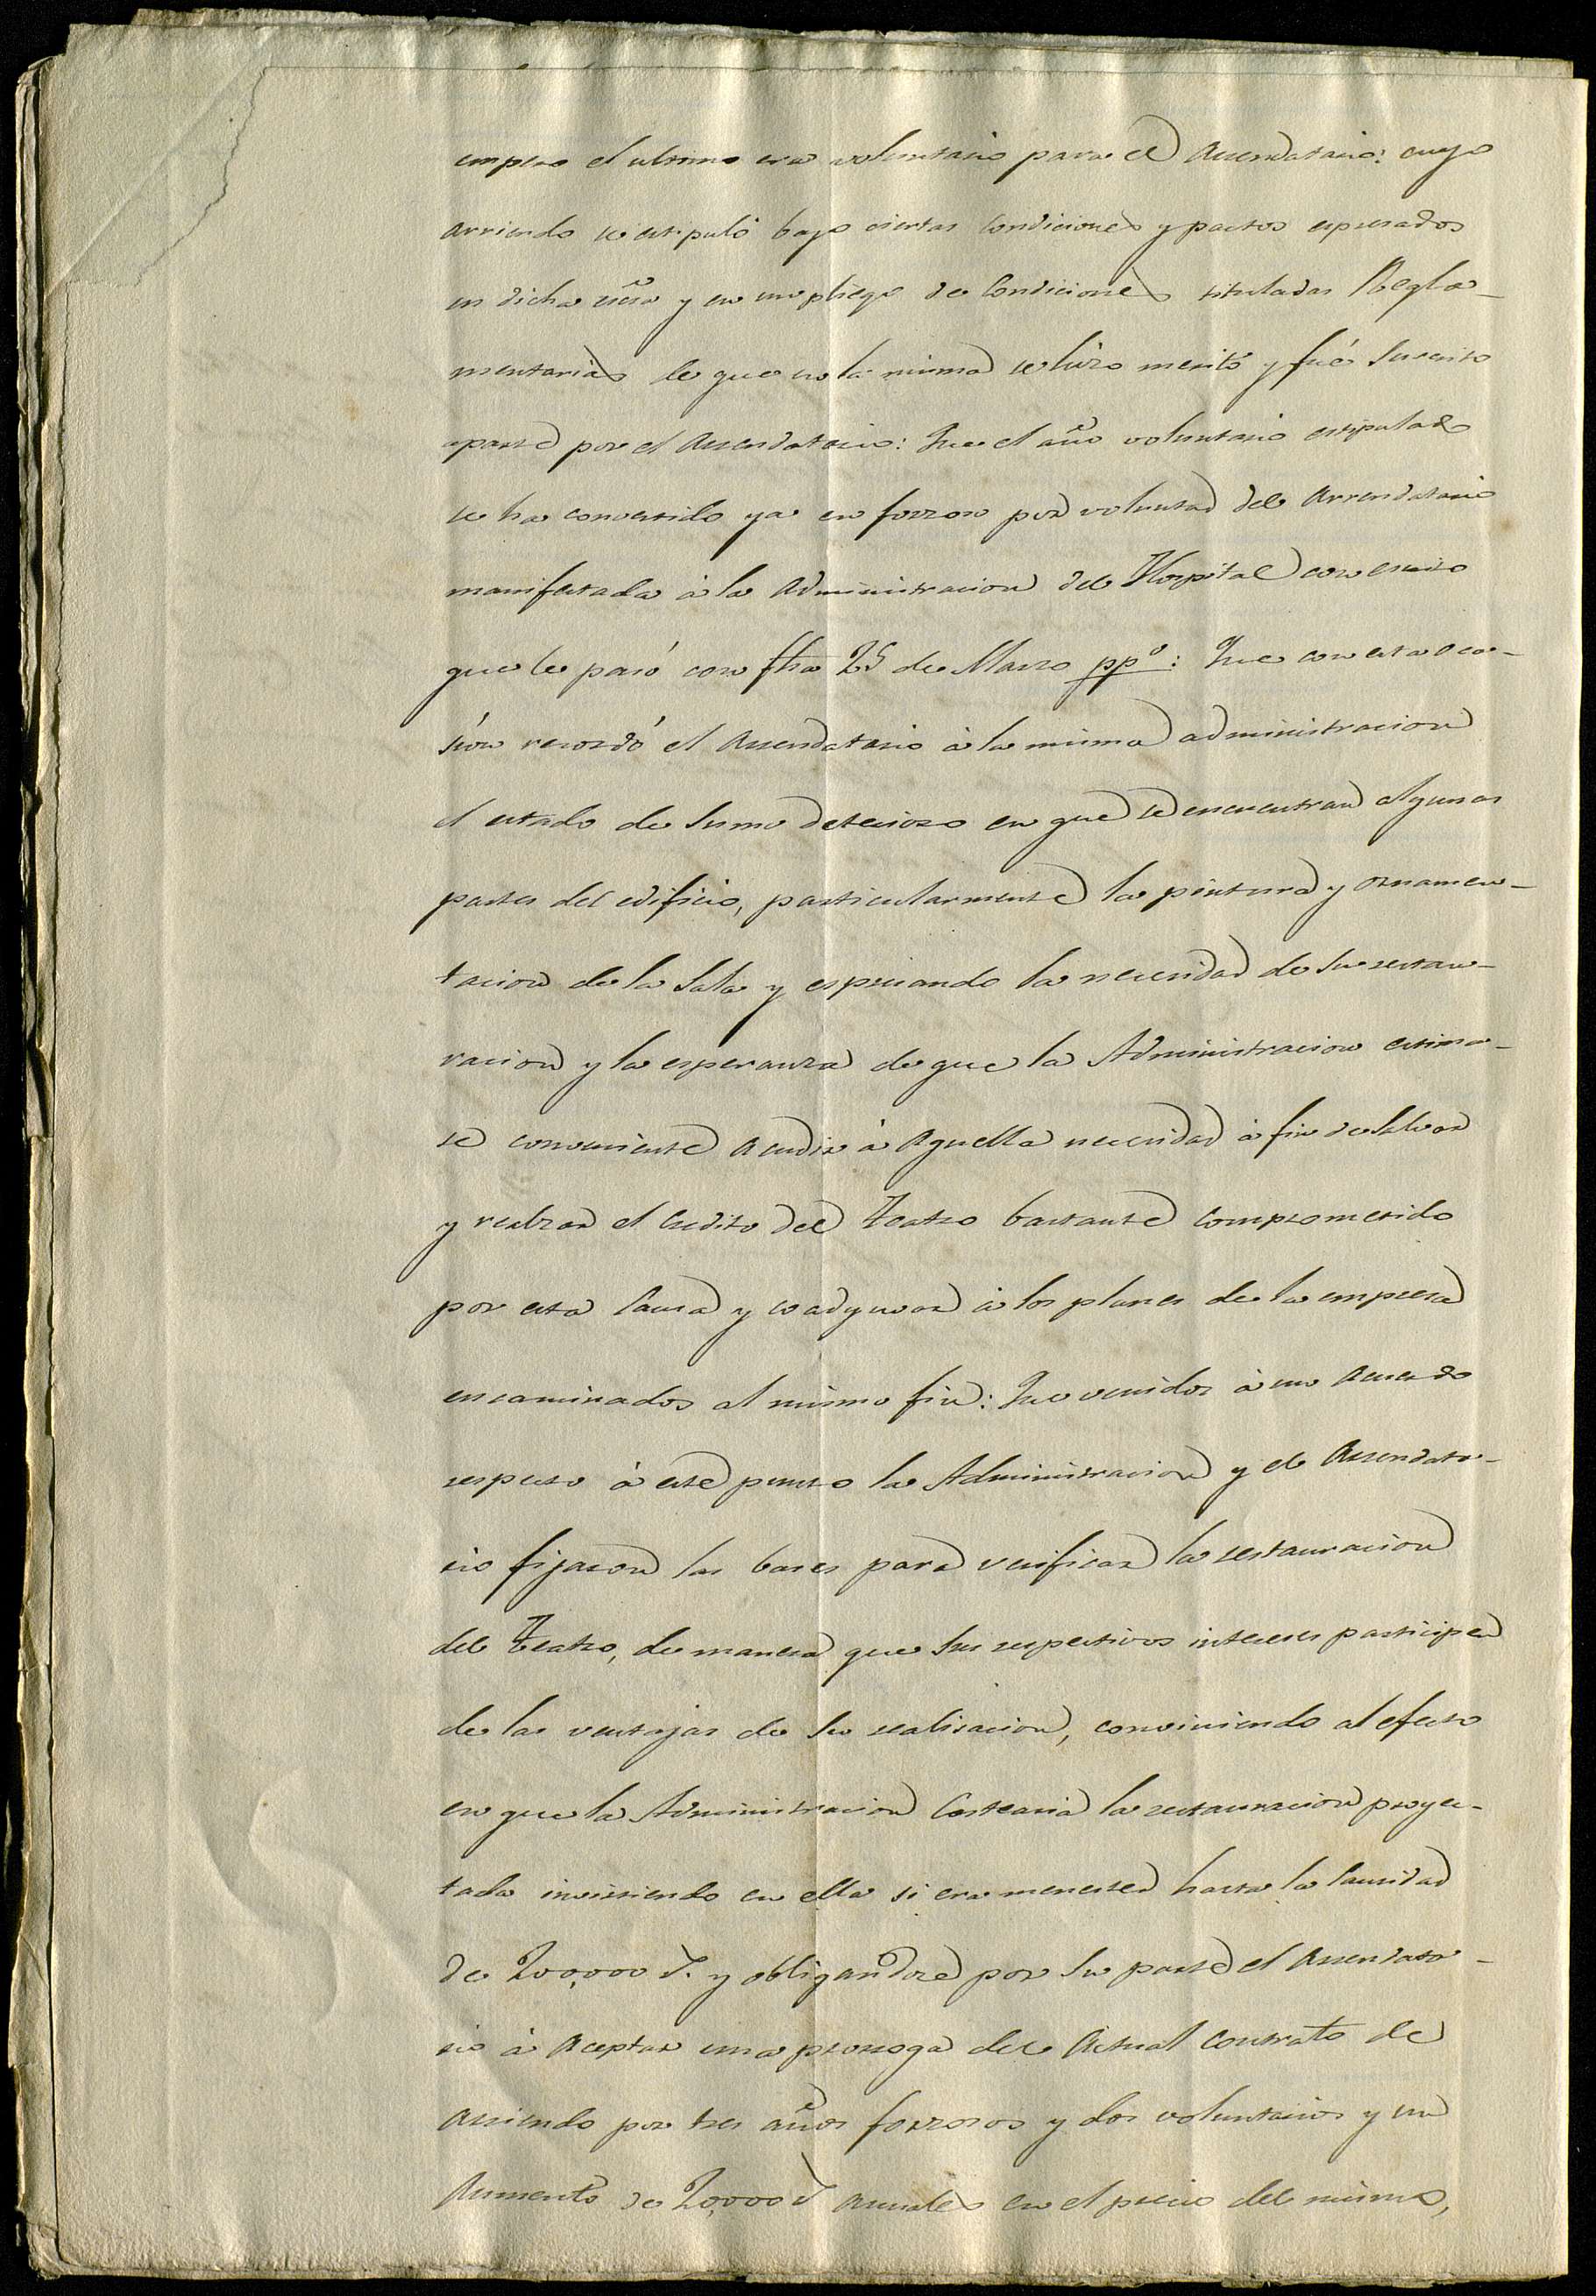 empero el ultimo era voluntario para el Arrendatario: cuyo
arriendo se estipuló bajo ciertas Condiciones y pactos espresados
en dicha essra y en un pliego de Condiciones tituladas Regla-
mentarias de que en la misma se hizo merito y fué suscrito
aparte por el Arrendatario: Que el año voluntario estipulado
se ha convertido ya en forzoso por voluntad del Arrendatario
manifestada á la Administracion del Hospital con escrito
que le pasó con fha 25 de Marzo ppº: Que con esta oca-
sión recordó el Arrendatario á la misma administracion
el estado de sumo deterioro en que se encuentran algunas
partes del edificio, particularmente la pintura y ornamen-
tacion de la Sala y espresando la necesidad de su restau-
racion y la esperanza de que la Administracion estima-
se conveniente acudir á aquella necesidad á fin de salvar
y realzar el credito del Teatro bastante comprometido
por esta causa y coadyuvar á los planes de la empresa
encaminados al mismo fin: Que venidos á un acuerdo
respecto á este punto la Administracion y el Arrendata-
rio fijaron las bases para verificar la restauracion
del Teatro, de manera que sus respectivos intereses participen
de las ventajas de su realisacion, conviniendo al efecto
en que la Administracion Costearia la restauracion proyec-
tada invirtiendo en ella si era menester hasta la Cantidad
de 200,000 r. y obligandose por su parte el Arrendata-
rio á aceptar una prorroga del actual contrato de
Arriendo por tres años forzosos y dos voluntarios y un
Aumento de 20,000 r anuales en el precio del mismo,